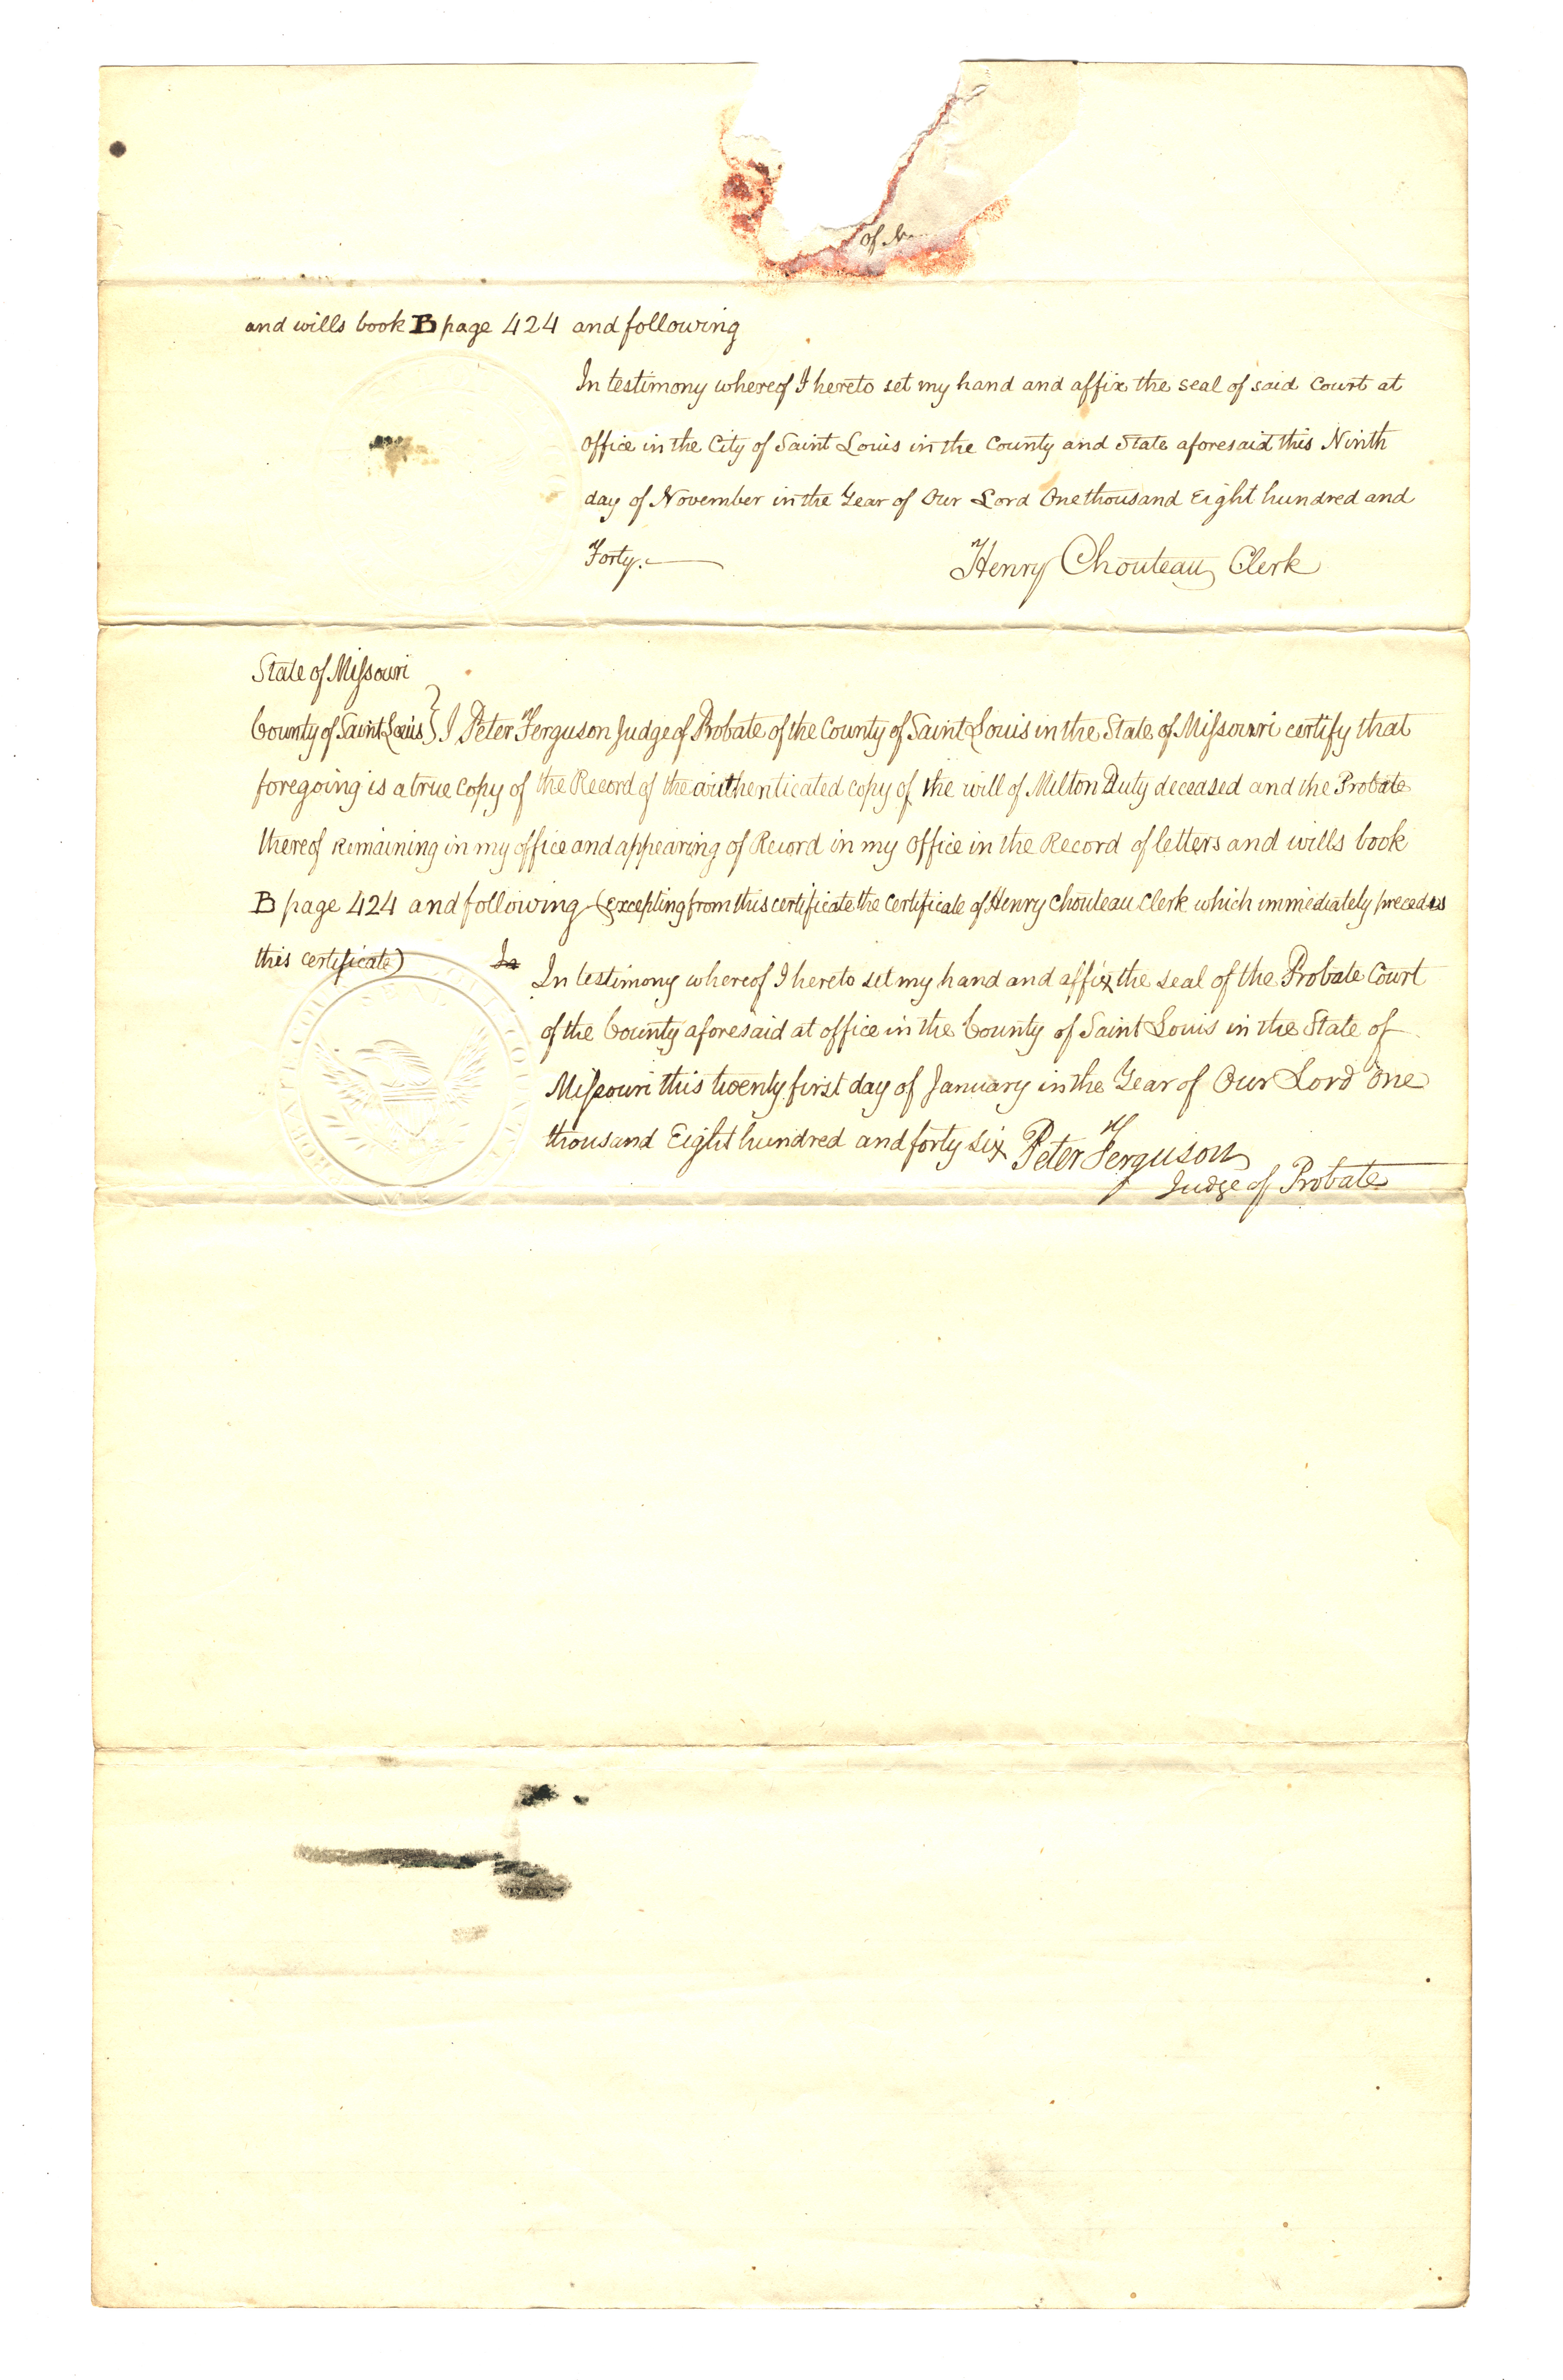 of
and wills book B page 424 and following
In testimony whereof I hereto set my hand and affix the seal of said Court at
Office in the City of Saint Louis in the County and State aforesaid this Ninth
day of November in the Year of Our Lord One thousand Eight hundred and
Forty.
Henry Chouteau Clerk
State of Missouri
County of Saint Louis } I Peter Ferguson Judge of Probate of the County of Saint Louis in the State of Missouri certify that
foregoing is a true copy of the Record of the authenticated copy of the will of Milton Duty deceased and the Probate
thereof remaining in my office and appearing of Record in my Office in the Record of letters and wills book
B page 424 and following (excepting from this certificate the certificate of Henry Chouteau Clerk which immediately precedes
this certificate) In
In testimony whereof I hereto set my hand and affix the seal of the Probate Court
of the County aforesaid at office in the County of Saint Louis in the State of
Missouri this twenty first day of January in the Year of Our Lord One
thousand Eight hundred and forty six Peter Ferguson
Judge of Probate